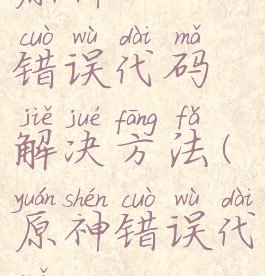 cuò wù dài mǎ
错误代码
jiě jué fāng fǎ
解决方法(
yuán shén cuò wù dài
原神错误代